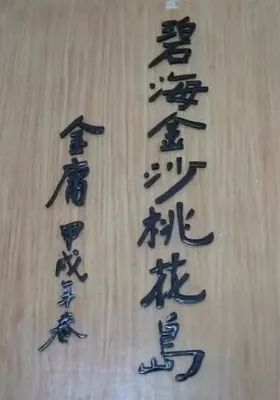 碧海金沙桃花島
金庸 甲戌年春